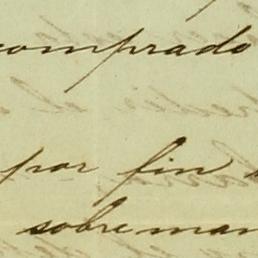 comprado
por fin
sobre man